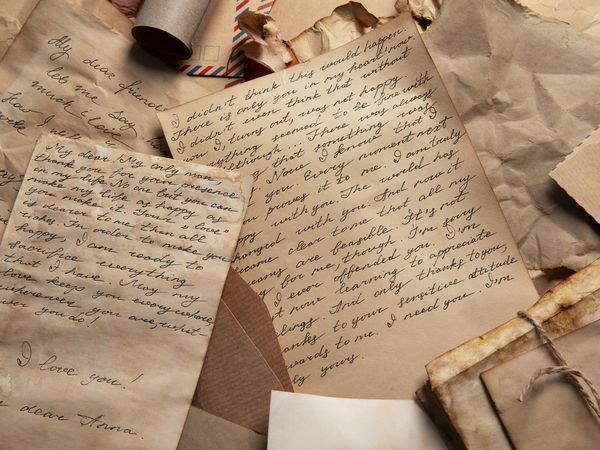 My dear friend
let me say
much I
How I
My dear! My only man
thank you for your presence
in my life. No one but you can
make my life as happy as
you make it. Your love
is dearer than all
In order to make you
happy, I am ready to
sacrifice everything
that I have. May my
love keep you everywhere,
wherever you are, what
ever you do!
I love you!
dear Anna.
I didn't think this would happen.
There is only you in my heart now.
I didn't even think that without
you I, turns out, was not happy
everything seemed to be fine with
although... There was always
that something was
you. Now I know that I
you. Every moment next
proves it to me. I am truly
happy with you. The world has
changed with you. And now it
became clear to me that all my
dreams are feasible. It's not
for me, though. I'm sorry
I ever offended you. I'm
just now learning to appreciate
feelings. And only thanks to you,
thanks to your sensitive attitude
towards to me. I need you. I'm
only yours.